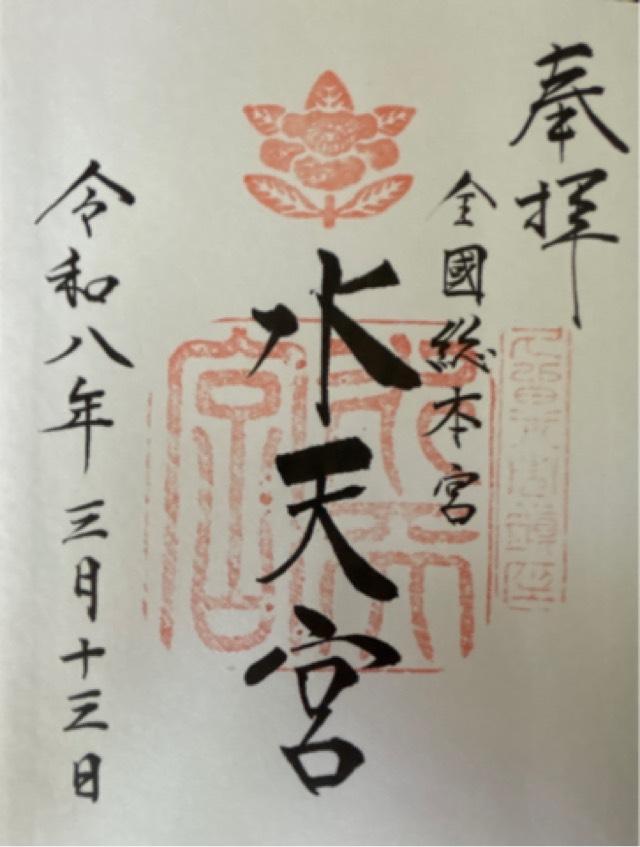 奉拝
全國総本宮
水天宮
令和八年三月十三日